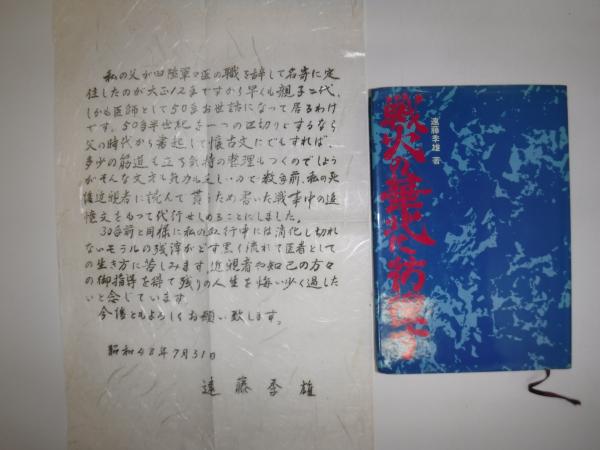 私の父が旧陸軍々医の職を辞して名寄に定
住したのが大正12年ですから早くも親子二代、
しかも医師として50年お世話になって居るわけ
です。50年半世紀を一つの区切りとするなら
父の時代から著起して懐古文にでもすれば、
多少の筋道も立ち気持の整理もつくのでしょう
がそんな文才も気力も乏しいので数年前、私の死
後近親者に読んで貰うため書いた戦争中の追
憶文をもって代行せしめることにしました。
30年前と同様に私の血行中には消化し切れ
ないモラルの残滓がどす黒く流れて医者として
の生き方に苦しみます。近親者や知己の方々
の御指導を得て残りの人生を悔い少く過した
いと念じています。
今後ともよろしくお願い致します。
昭和48年7月31日
遠藤季雄
遠藤季雄 著
戦火の華北に彷徨う